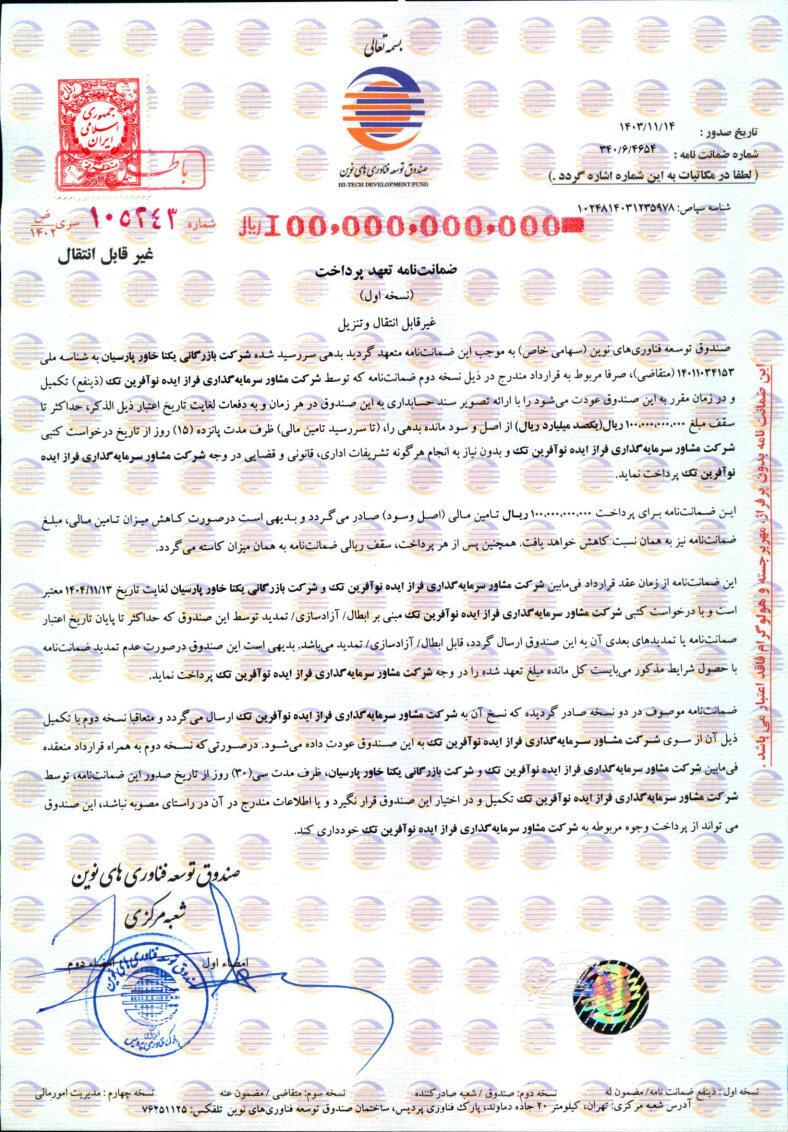 بسمه تعالی
صندوق توسعه فناوری های نوین
HI-TECH DEVELOPMENT FUND
تاریخ صدور : ۱۴۰۳/۱۱/۱۴
شماره ضمانت نامه : ۳۴۰/۶/۴۶۵۴
( لطفا در مکاتبات به این شماره اشاره گردد .)
شناسه سپاص: ۱۰۲۴۸۱۴۰۳۱۲۳۵۹۷۸
جمهوری اسلامی ایران
باطل
شماره ۱۰۵۲۴۳ سری ض ۱۴۰۲
غیر قابل انتقال
100,000,000,000 ریال
ضمانت‌نامه تعهد پرداخت
(نسخه اول)
غیرقابل انتقال وتنزیل
صندوق توسعه فناوری‌های نوین (سهامی خاص) به موجب این ضمانت‌نامه متعهد گردید بدهی سررسید شده شرکت بازرگانی یکتا خاور پارسیان به شناسه ملی
۱۴۰۱۱۰۳۴۱۵۳ (متقاضی)، صرفا مربوط به قرارداد مندرج در ذیل نسخه دوم ضمانت‌نامه که توسط شرکت مشاور سرمایه‌گذاری فراز ایده نوآفرین تک (ذینفع) تکمیل
و در زمان مقرر به این صندوق عودت می‌شود را با ارائه تصویر سند حسابداری به این صندوق در هر زمان و به دفعات لغایت تاریخ اعتبار ذیل الذکر، حداکثر تا
سقف مبلغ ۱۰۰,۰۰۰,۰۰۰,۰۰۰ ریال(یکصد میلیارد ریال) از اصل و سود مانده بدهی را، (تا سررسید تامین مالی) ظرف مدت پانزده (۱۵) روز از تاریخ درخواست کتبی
شرکت مشاور سرمایه‌گذاری فراز ایده نوآفرین تک و بدون نیاز به انجام هرگونه تشریفات اداری، قانونی و قضایی در وجه شرکت مشاور سرمایه‌گذاری فراز ایده
نوآفرین تک پرداخت نماید.
این ضمانت‌نامه برای پرداخت ۱۰۰,۰۰۰,۰۰۰,۰۰۰ ریـال تـامین مـالی (اصل وسـود) صادر می‌گـردد و بدیهی است درصورت کـاهش میـزان تـامین مـالی، مبلغ
ضمانت‌نامه نیز به همان نسبت کاهش خواهد یافت. همچنین پس از هر پرداخت، سقف ریالی ضمانت‌نامه به همان میزان کاسته می‌گردد.
این ضمانت‌نامه از زمان عقد قرارداد فی‌مابین شرکت مشاور سرمایه‌گذاری فراز ایده نوآفرین تک و شرکت بازرگانی یکتا خاور پارسیان لغایت تاریخ ۱۴۰۴/۱۱/۱۳ معتبر
است و با درخواست کتبی شرکت مشاور سرمایه‌گذاری فراز ایده نوآفرین تک مبنی بر ابطال/ آزادسازی/ تمدید توسط این صندوق که حداکثر تا پایان تاریخ اعتبار
ضمانت‌نامه یا تمدیدهای بعدی آن به این صندوق ارسال گردد، قابل ابطال/ آزادسازی/ تمدید می‌باشد. بدیهی است این صندوق درصورت عدم تمدید ضمانت‌نامه
با حصول شرایط مذکور می‌بایست کل مانده مبلغ تعهد شده را در وجه شرکت مشاور سرمایه‌گذاری فراز ایده نوآفرین تک پرداخت نماید.
ضمـانت‌نامه موصوف در دو نسخه صـادر گردیده که نسخ آن به شرکت مشاور سرمایه‌گذاری فراز ایده نوآفرین تک ارسال می‌گردد و متعاقبا نسخه دوم با تکمیل
ذیل آن از سوی شرکت مشـاور سـرمایه‌گذاری فراز ایده نوآفرین تک به این صـندوق عودت داده می‌شود. درصورتی‌که نسخه دوم به همراه قرارداد منعقده
فی‌مابین شرکت مشاور سرمایه‌گذاری فراز ایده نوآفرین تک و شرکت بازرگانی یکتا خاور پارسیان، ظرف مدت سی(۳۰) روز از تاریخ صدور این ضمانت‌نامه، توسط
شرکت مشاور سرمایه‌گذاری فراز ایده نوآفرین تک تکمیل و در اختیار این صندوق قرار نگیرد و یا اطلاعات مندرج در آن در راستای مصوبه نباشد، این صندوق
می تواند از پرداخت وجوه مربوطه به شرکت مشاور سرمایه‌گذاری فراز ایده نوآفرین تک خودداری کند.
این ضمانت نامه بدون پرفراژ، مهربرجسته و هولوگرام فاقد اعتبار می باشد .
صندوق توسعه فناوری های نوین
شعبه مرکزی
امضاء اول
امضاء دوم
صندوق توسعه فناوری های نوین
نسخه اول: ذینفع ضمانت نامه/ مضمون له
نسخه دوم: صندوق / شعبه صادرکننده
نسخه سوم: متقاضی/ مضمون عنه
نسخه چهارم: مدیریت امورمالی
آدرس شعبه مرکزی: تهران، کیلومتر ۲۰ جاده دماوند، پارک فناوری پردیس، ساختمان صندوق توسعه فناوری‌های نوین تلفکس: ۷۶۲۵۱۱۲۵